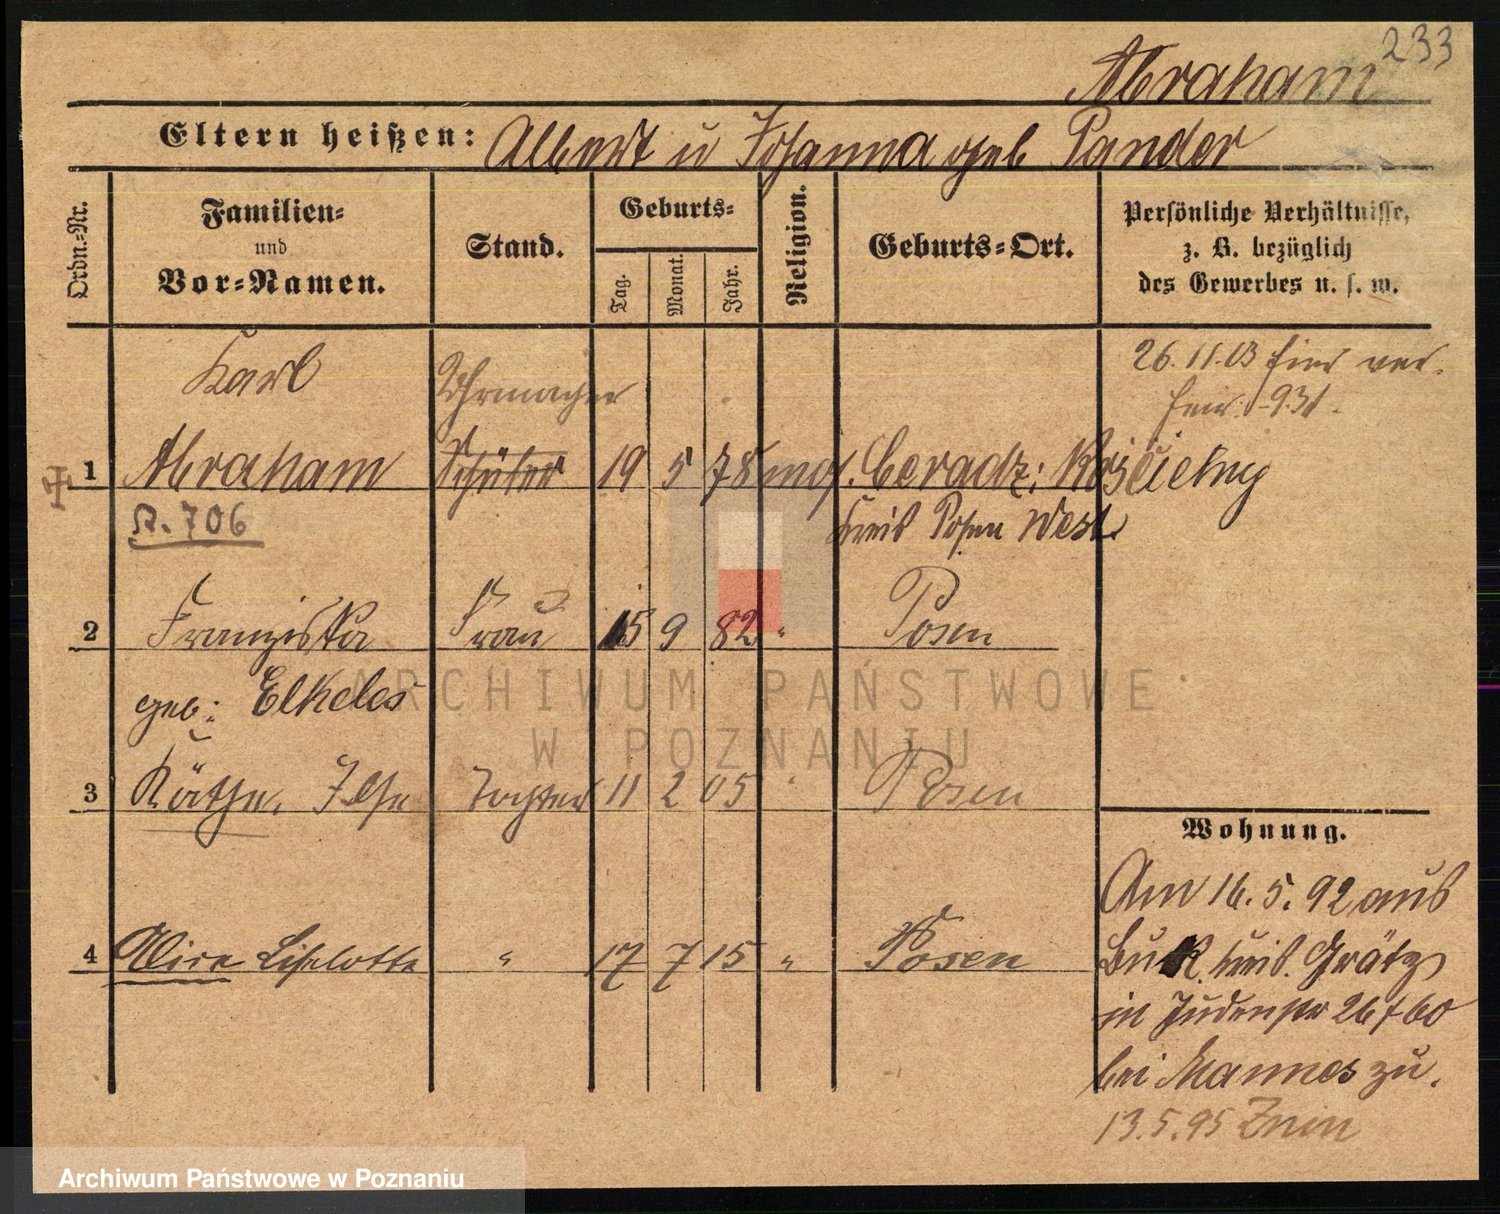 233
Abraham
Eltern heißen: Albert u Johanna geb Pander
Ordn.-Nr.
Familien-
und
Vor-Namen.
Stand.
Geburts-
Tag.
Monat.
Jahr.
Religion.
Geburts-Ort.
Persönliche Verhältnisse,
z. B. bezüglich
des Gewerbes u. s. w.
Karl
Uhrmacher
26.11.03 hier ver.
heir. 931.
1 Abraham Schüler 19 5 78 mos. Ceradz; Kościelny
R. 706
Kreis Posen West
2 Franziska Frau 15 9 82 " Posen
geb: Elkeles
3 Käthe, Ilse Tochter 11 2 05 " Posen
4 Alice Liselotte " 17 7 15 " Posen
Wohnung.
Am 16.5.92 aus
Buk Kreis. Grätz
in Judenstr 26/60
bei Mannes zu.
13.5.95 Znin
ARCHIWUM PAŃSTWOWE
W POZNANIU
Archiwum Państwowe w Poznaniu